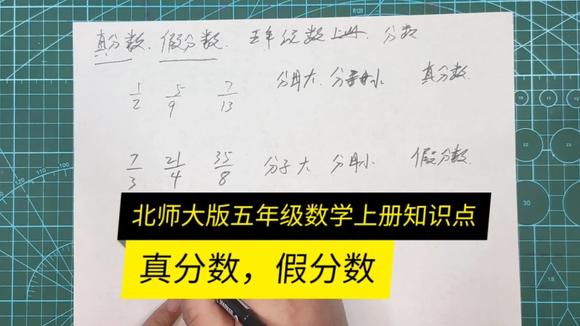 真分数、假分数. 五年级数上册 分数
1/2 5/9 7/13 分母大、分子小 真分数
7/3 21/4 35/8 分子大 分母小 假分数
北师大版五年级数学上册知识点
真分数，假分数